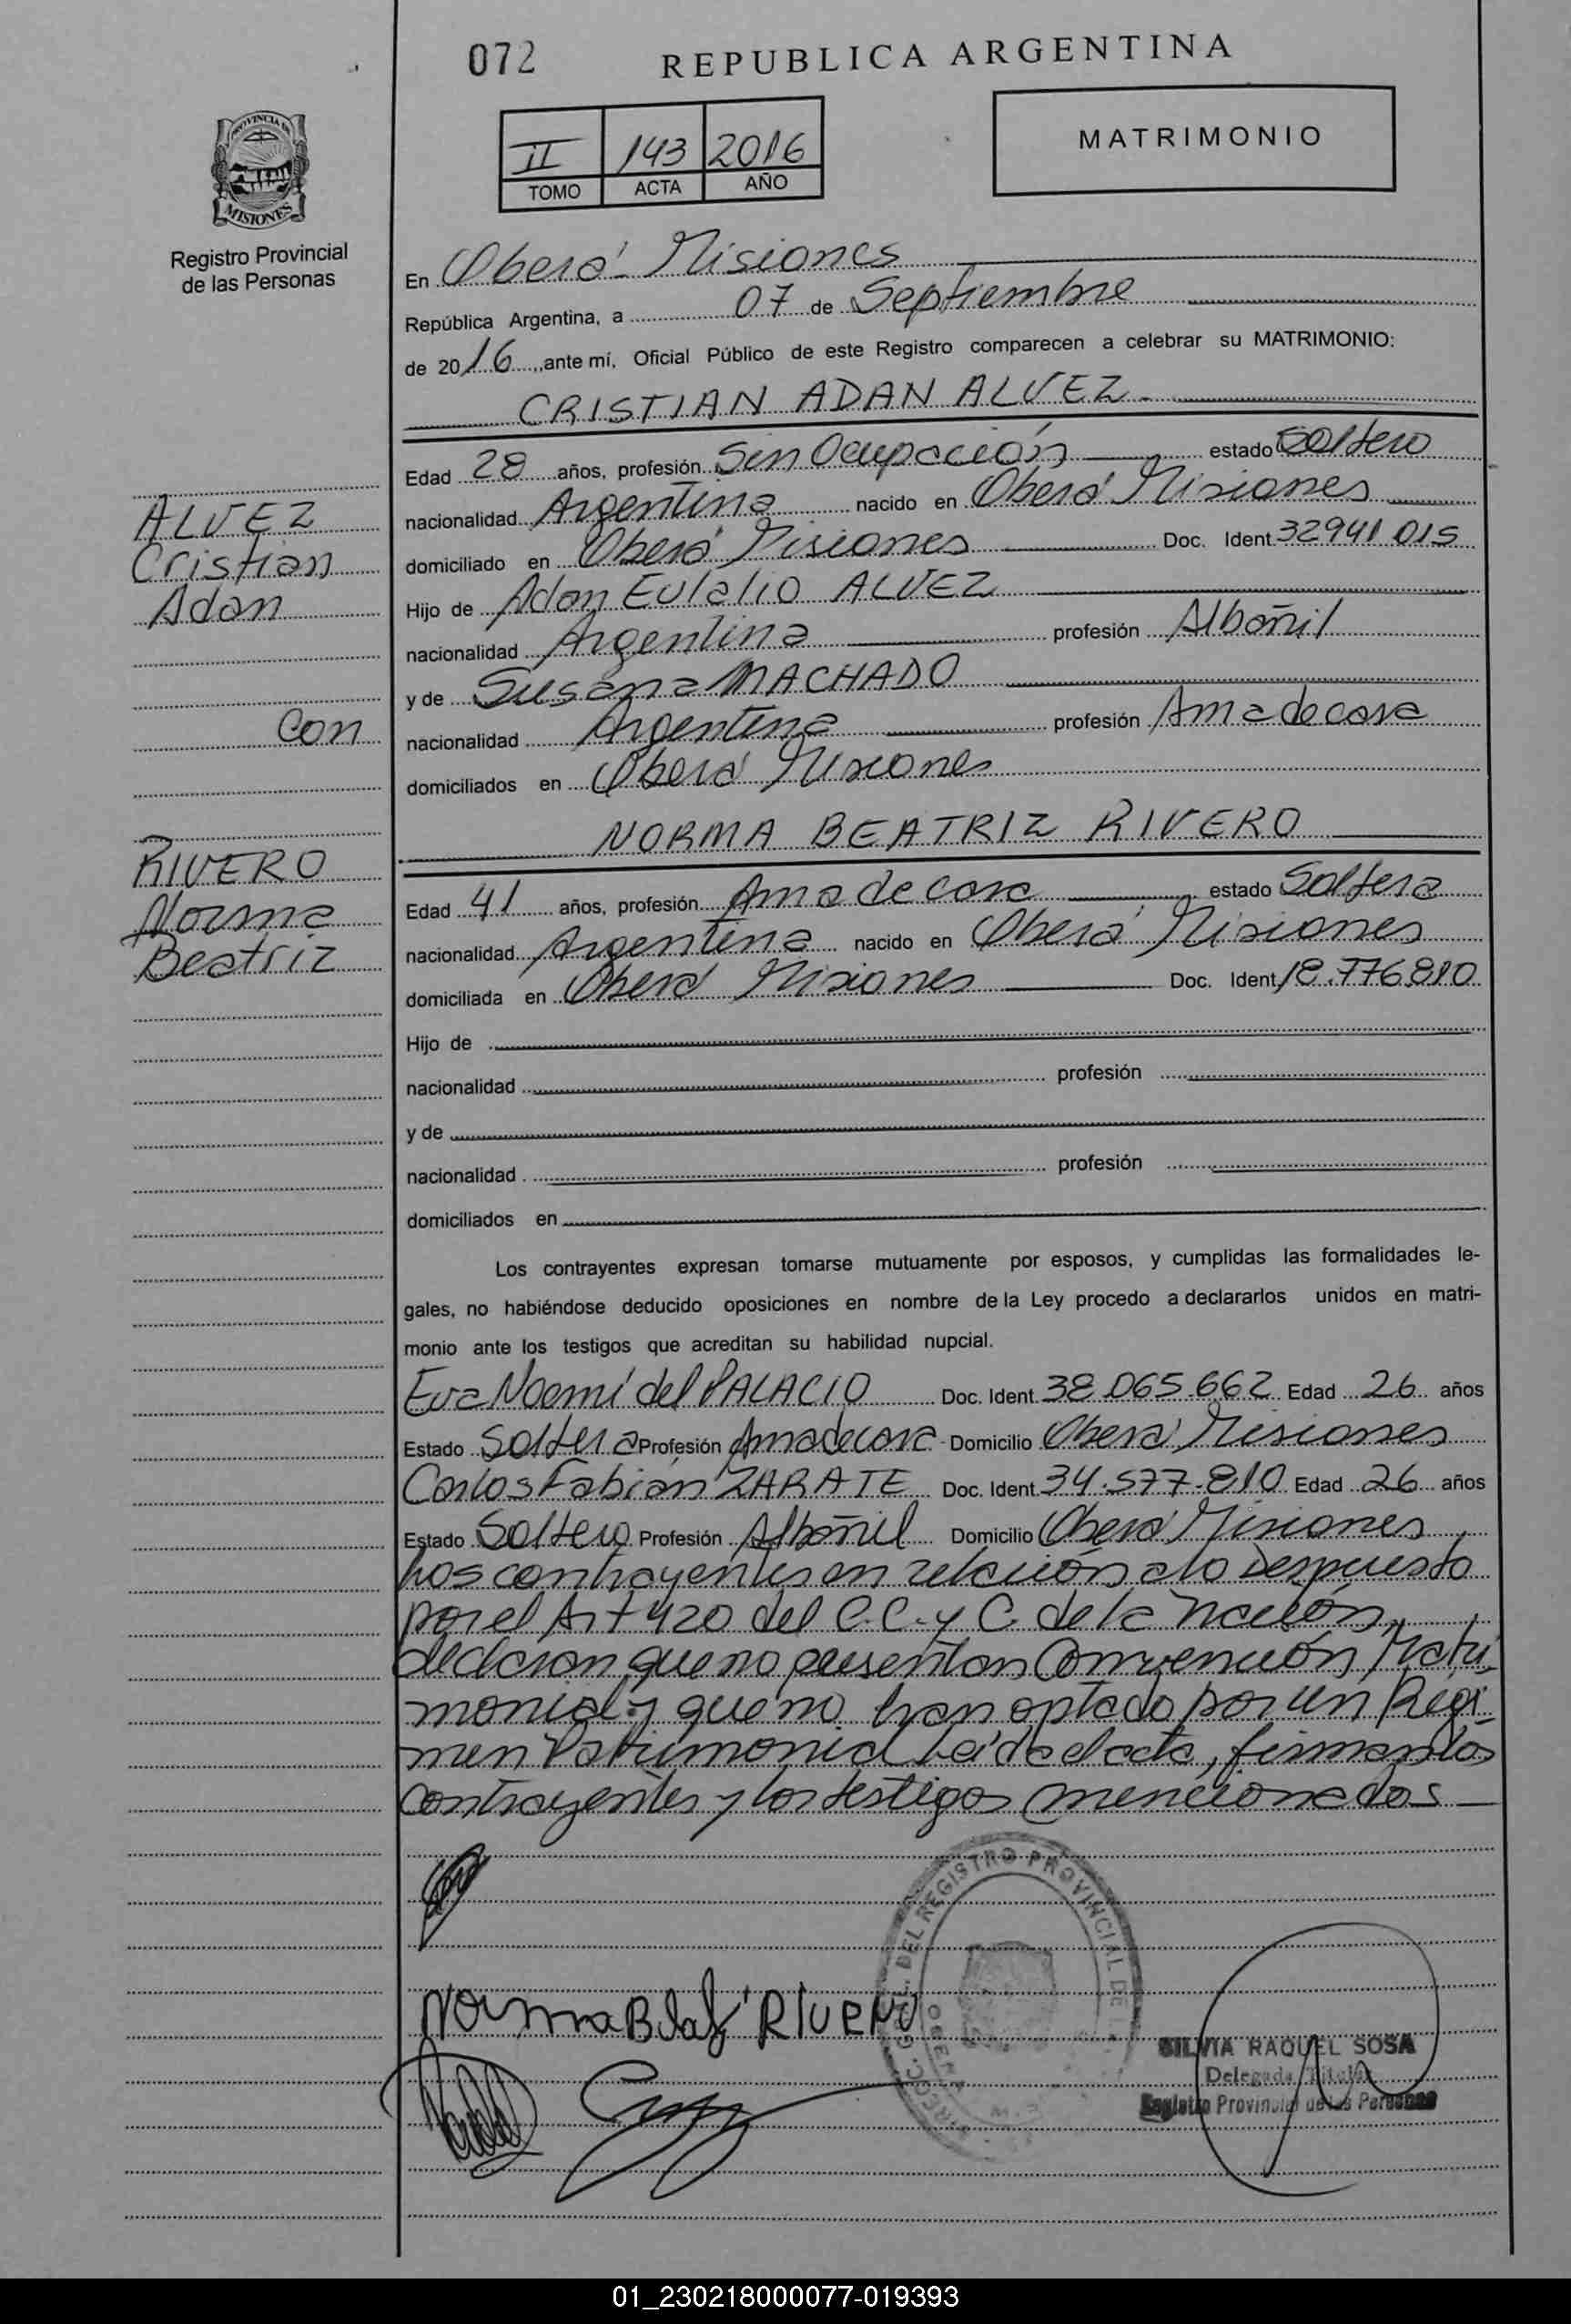 072
REPUBLICA ARGENTINA
II 143 2016
TOMO ACTA AÑO
MATRIMONIO
PROVINCIA DE
MISIONES
Registro Provincial
de las Personas
En Oberá - Misiones
República Argentina, a 07 de Septiembre
de 2016, ante mí, Oficial Público de este Registro comparecen a celebrar su MATRIMONIO:
CRISTIAN ADAN ALVEZ
Edad 28 años, profesión Sin Ocupación estado Soltero
nacionalidad Argentina nacido en Oberá Misiones
domiciliado en Oberá Misiones Doc. Ident 32941015
Hijo de Adan Eulalio ALVEZ
nacionalidad Argentina profesión Albañil
y de Susana MACHADO
nacionalidad Argentina profesión Ama de casa
domiciliados en Oberá Misiones
ALVEZ
Cristian
Adan
con
RIVERO
Norma
Beatriz
NORMA BEATRIZ RIVERO
Edad 41 años, profesión Ama de casa estado Soltera
nacionalidad Argentina nacido en Oberá Misiones
domiciliada en Oberá Misiones Doc. Ident 18.776.810
Hijo de
nacionalidad profesión
y de
nacionalidad profesión
domiciliados en
Los contrayentes expresan tomarse mutuamente por esposos, y cumplidas las formalidades le-
gales, no habiéndose deducido oposiciones en nombre de la Ley procedo a declararlos unidos en matri-
monio ante los testigos que acreditan su habilidad nupcial.
Eva Noemí del PALACIO Doc. Ident. 38.065.662 Edad 26 años
Estado Soltera Profesión Ama de casa - Domicilio Oberá Misiones
Carlos Fabian ZARATE Doc. Ident 34.577.810 Edad 26 años
Estado Soltero Profesión Albañil Domicilio Oberá Misiones
Los contrayentes en relación a lo Dispuesto
por el Art 420 del C.C. y C. de la Nación,
declaran que no presentan Convención Matri-
monial y que no han optado por un Regi-
men Patrimonial Leída el acta, firman los
contrayentes y los testigos mencionados
Norma Beat RIVERO
DIRECC. GRAL. DEL REGISTRO PROVINCIAL DE
OBERA
SILVIA RAQUEL SOSA
Delegada Titular
Registro Provincial de las Personas
01_230218000077-019393